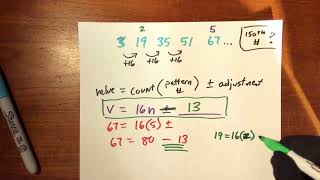 2 5
3 19 35 51 67...
+16 +16 +16
150TH # ?
value = count (pattern #) ± adjustment
V = 16n ± 13
67 = 16(5) ±
67 = 80 - 13
19 = 16(2)
Sharpie